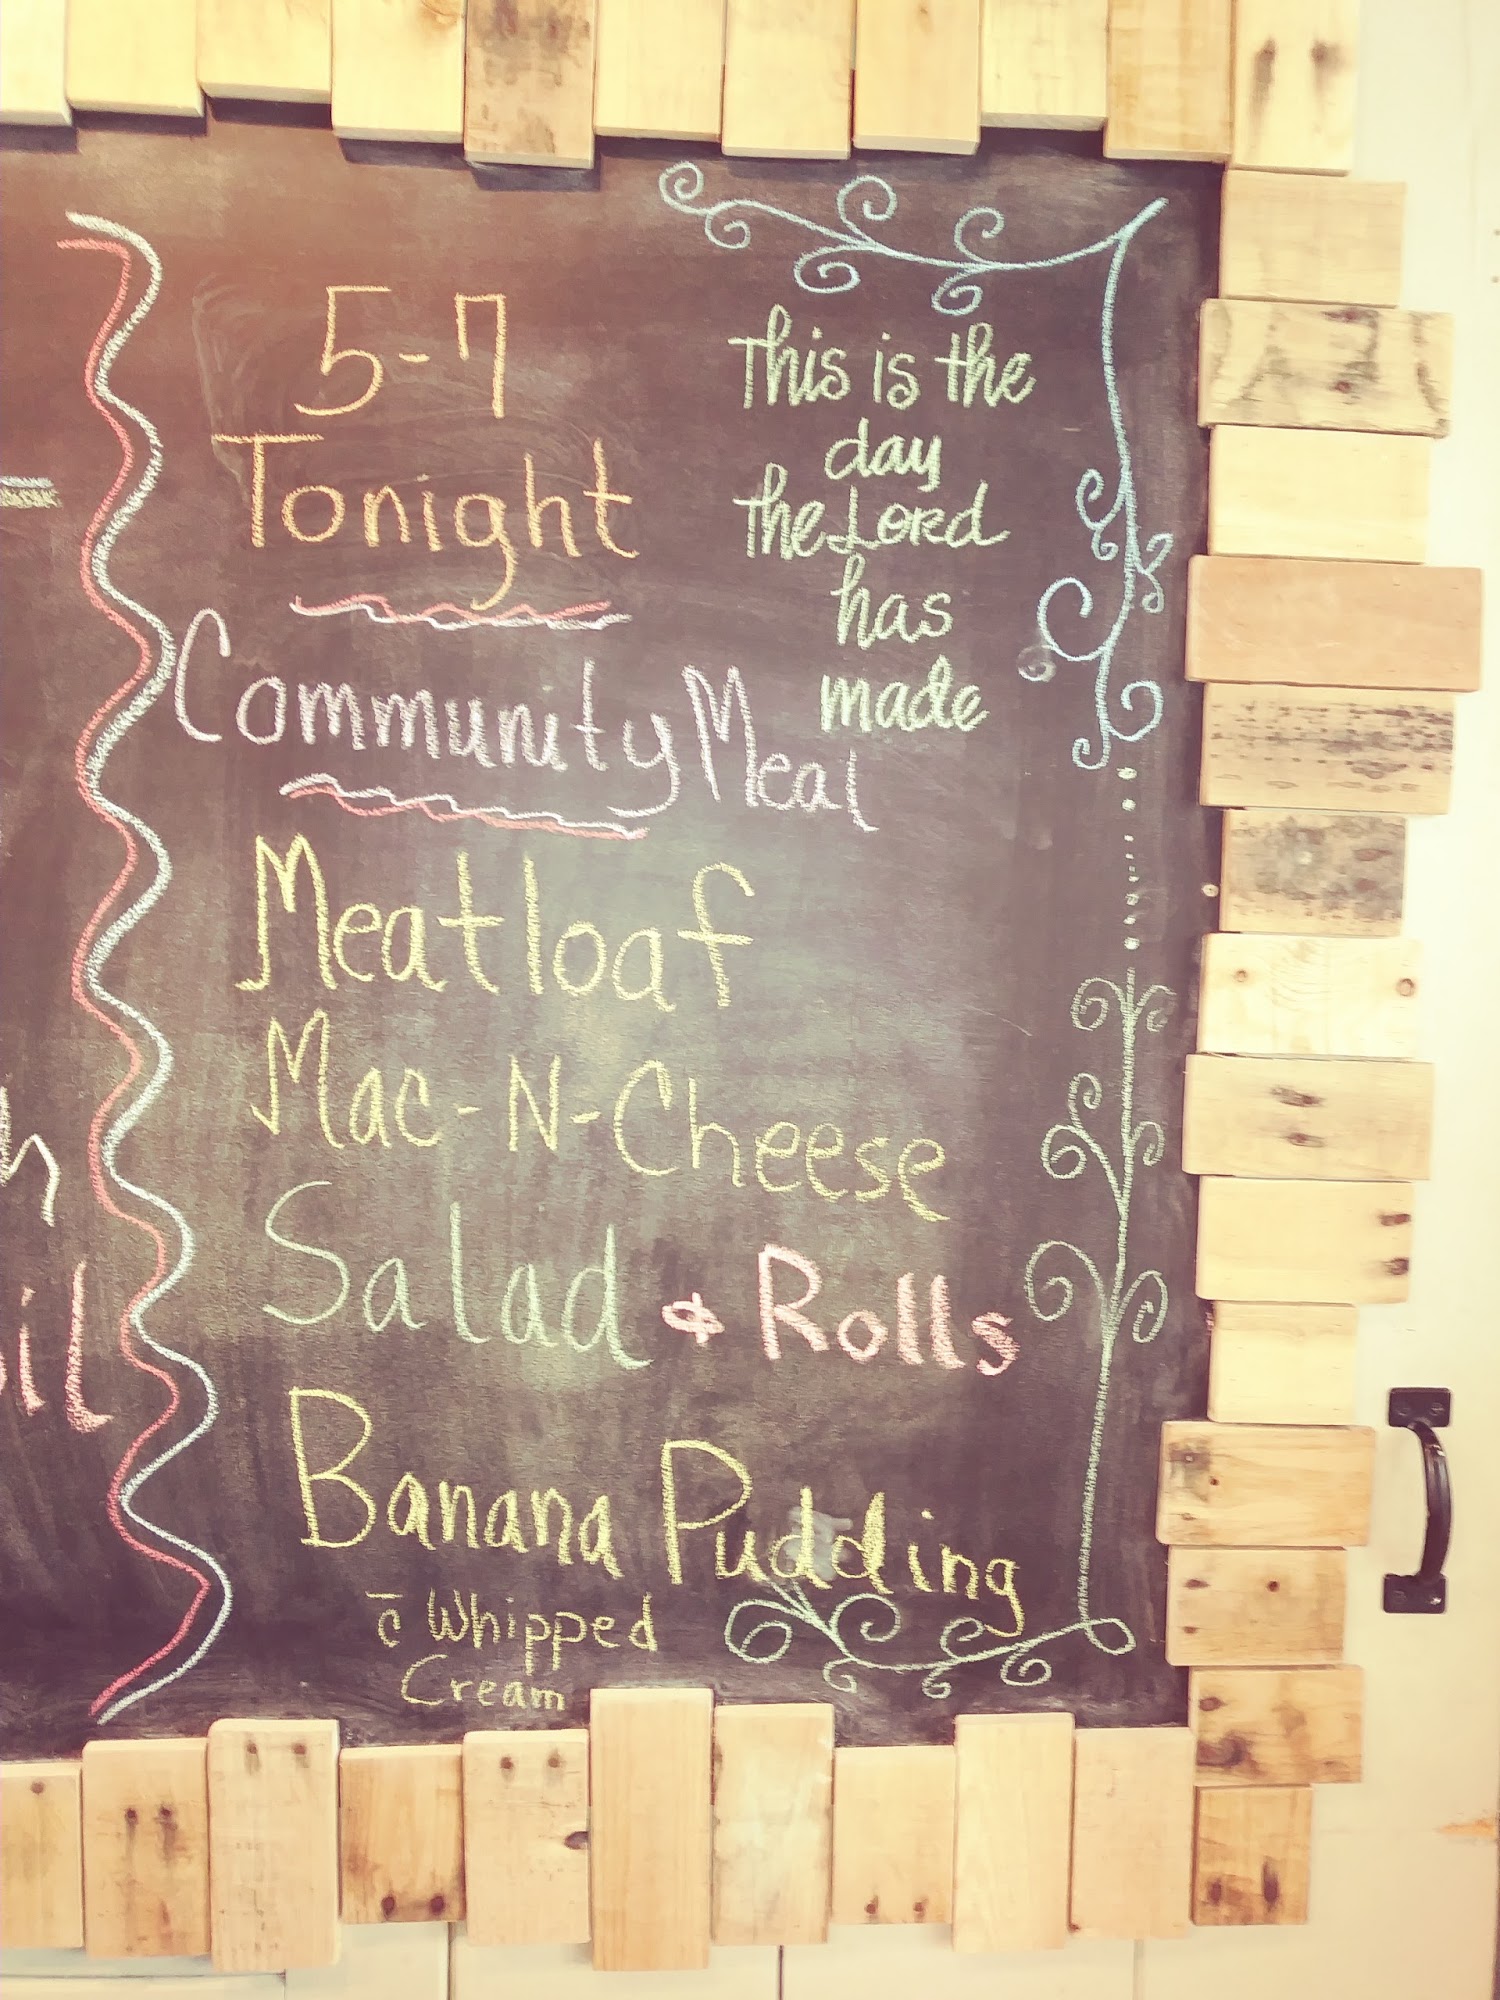 5-7
Tonight
Community Meal
Meatloaf
Mac-N-Cheese
Salad & Rolls
Banana Pudding
c̄ Whipped
Cream
This is the
day
the Lord
has
made